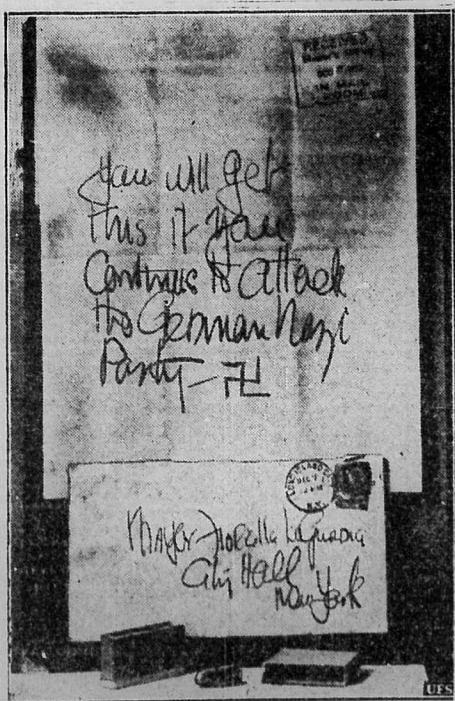 RECEIVED
You will get
this if you
Continue to attack
the German Nazi
Party —
DEC 7
N.Y.
Mayor Fiorella LaGuardia
City Hall
New York
UFS